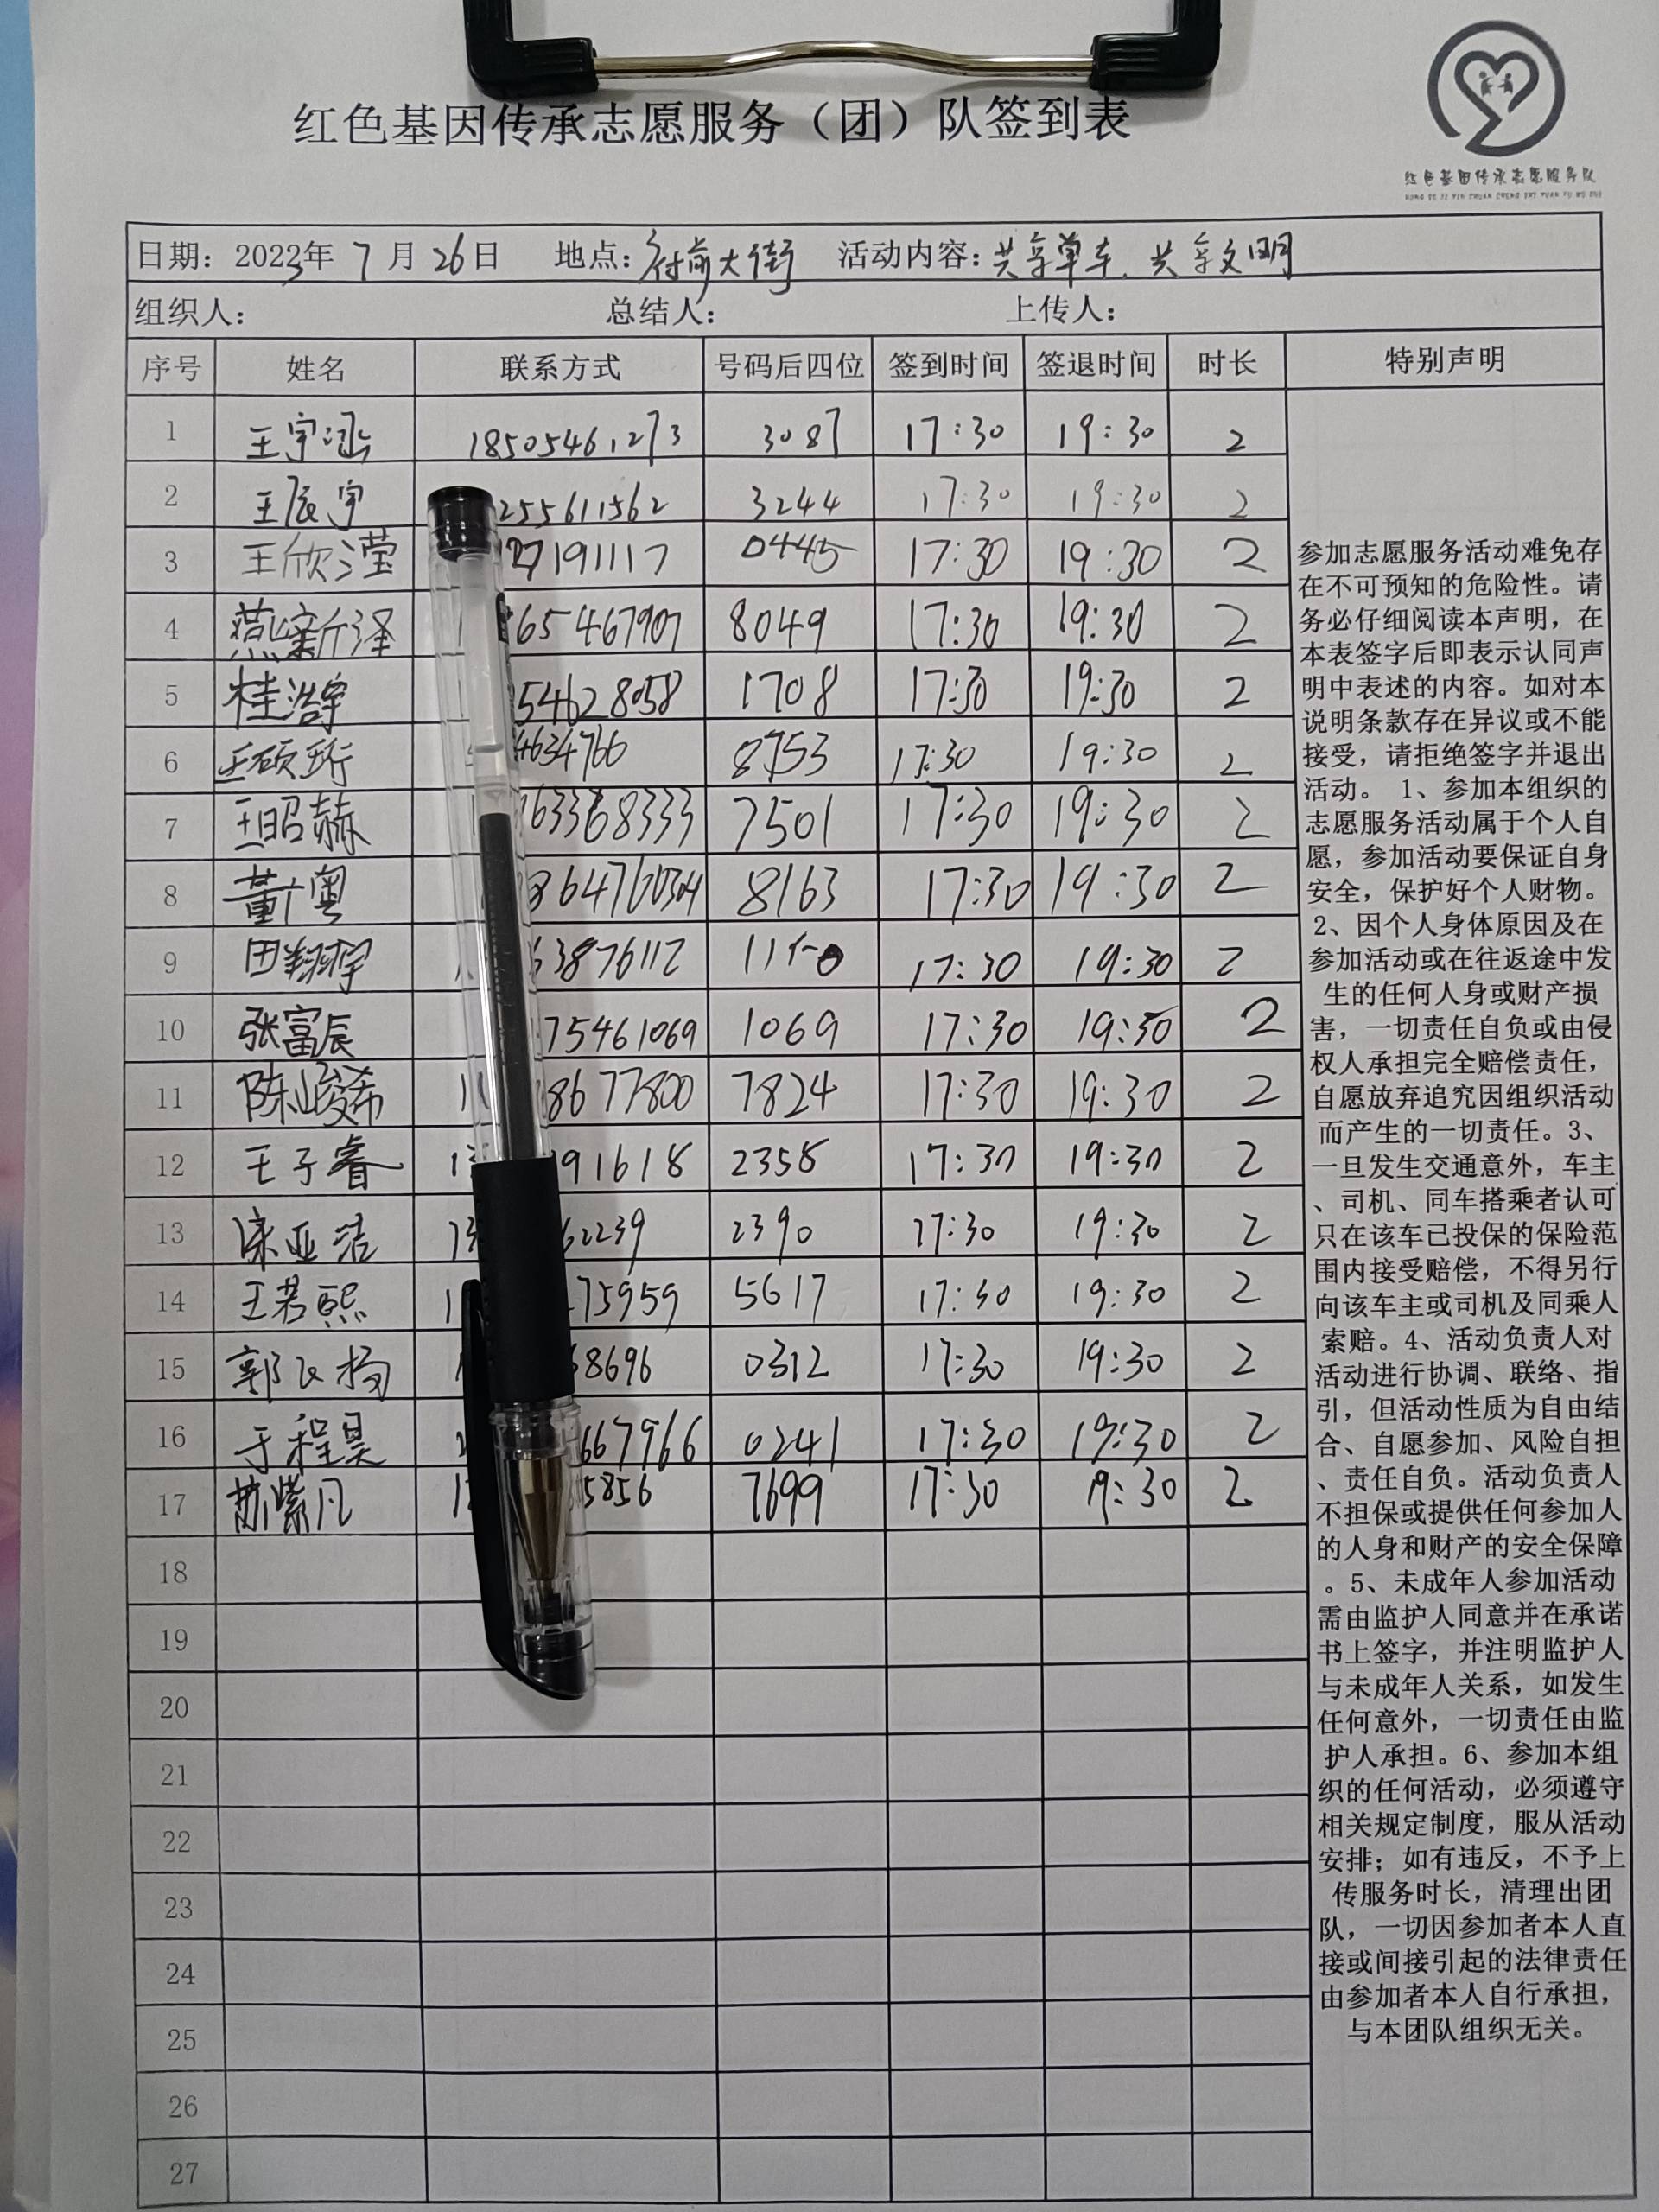 红色基因传承志愿服务（团）队签到表
红色基因传承志愿服务队
HONG SE JI YIN CHUAN CHENG ZHI YUAN FU WU DUI
日期：2023年 7 月 26 日 地点：府前大街 活动内容：共享单车、共享文明
组织人： 总结人： 上传人：
序号 姓名 联系方式 号码后四位 签到时间 签退时间 时长 特别声明
1 王宇涵 18505461273 3087 17:30 19:30 2
2 王辰宇 255611562 3244 17:30 19:30 2
3 王欣滢 27191117 0445 17:30 19:30 2
4 燕新泽 65467907 8049 17:30 19:30 2
5 桂浩宇 54628058 1708 17:30 19:30 2
6 王硕珩 4634766 8753 17:30 19:30 2
7 王昭赫 63368333 7501 17:30 19:30 2
8 董广粤 8163 17:30 19:30 2
9 田翔宇 63876112 17:30 19:30 2
10 张富辰 75461069 1069 17:30 19:30 2
11 陈峻希 8677800 7824 17:30 19:30 2
12 王子睿 91618 2358 17:30 19:30 2
13 亚洁 62239 2390 17:30 19:30 2
14 王若熙 75959 5617 17:30 19:30 2
15 郭 杨 68696 0312 17:30 19:30 2
16 于程昊 667966 0241 17:30 19:30 2
17 苏紫凡 5856 7699 17:30 19:30 2
18
19
20
21
22
23
24
25
26
27
参加志愿服务活动难免存
在不可预知的危险性。请
务必仔细阅读本声明，在
本表签字后即表示认同声
明中表述的内容。如对本
说明条款存在异议或不能
接受，请拒绝签字并退出
活动。 1、参加本组织的
志愿服务活动属于个人自
愿，参加活动要保证自身
安全，保护好个人财物。
2、因个人身体原因及在
参加活动或在往返途中发
生的任何人身或财产损
害，一切责任自负或由侵
权人承担完全赔偿责任，
自愿放弃追究因组织活动
而产生的一切责任。3、
一旦发生交通意外，车主
、司机、同车搭乘者认可
只在该车已投保的保险范
围内接受赔偿，不得另行
向该车主或司机及同乘人
索赔。4、活动负责人对
活动进行协调、联络、指
引，但活动性质为自由结
合、自愿参加、风险自担
、责任自负。活动负责人
不担保或提供任何参加人
的人身和财产的安全保障
。5、未成年人参加活动
需由监护人同意并在承诺
书上签字，并注明监护人
与未成年人关系，如发生
任何意外，一切责任由监
护人承担。6、参加本组
织的任何活动，必须遵守
相关规定制度，服从活动
安排；如有违反，不予上
传服务时长，清理出团
队，一切因参加者本人直
接或间接引起的法律责任
由参加者本人自行承担，
与本团队组织无关。